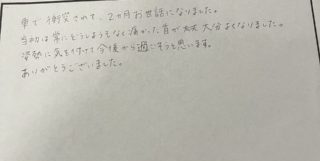 車で衝突されて、2ヵ月お世話になりました。
当初は常にどうしようもなく痛かった首が 大分よくなりました。
姿勢に気を付けて今後から過ごそうと思います。
ありがとうございました。